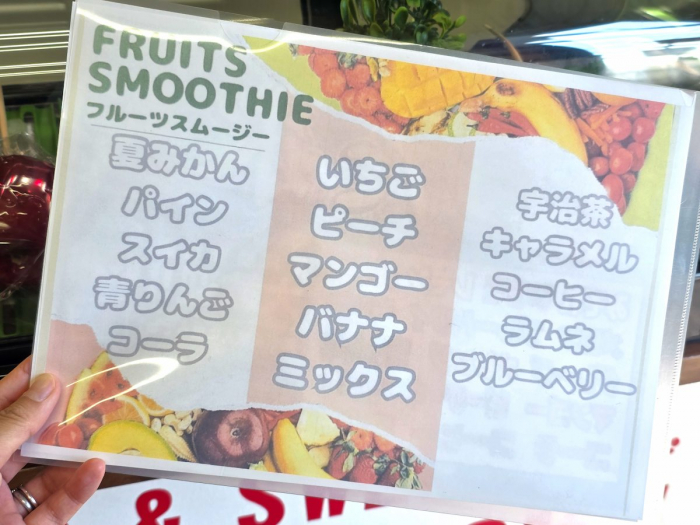 FRUITS
SMOOTHIE
フルーツスムージー
夏みかん
パイン
スイカ
青りんご
コーラ
いちご
ピーチ
マンゴー
バナナ
ミックス
宇治茶
キャラメル
コーヒー
ラムネ
ブルーベリー
&